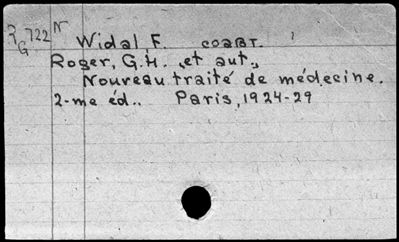 R 722 N
G
Widal F. соавт.
Roger, G.H. et aut.,
Nouveau traité de médecine.
2-me éd.. Paris, 1924-29